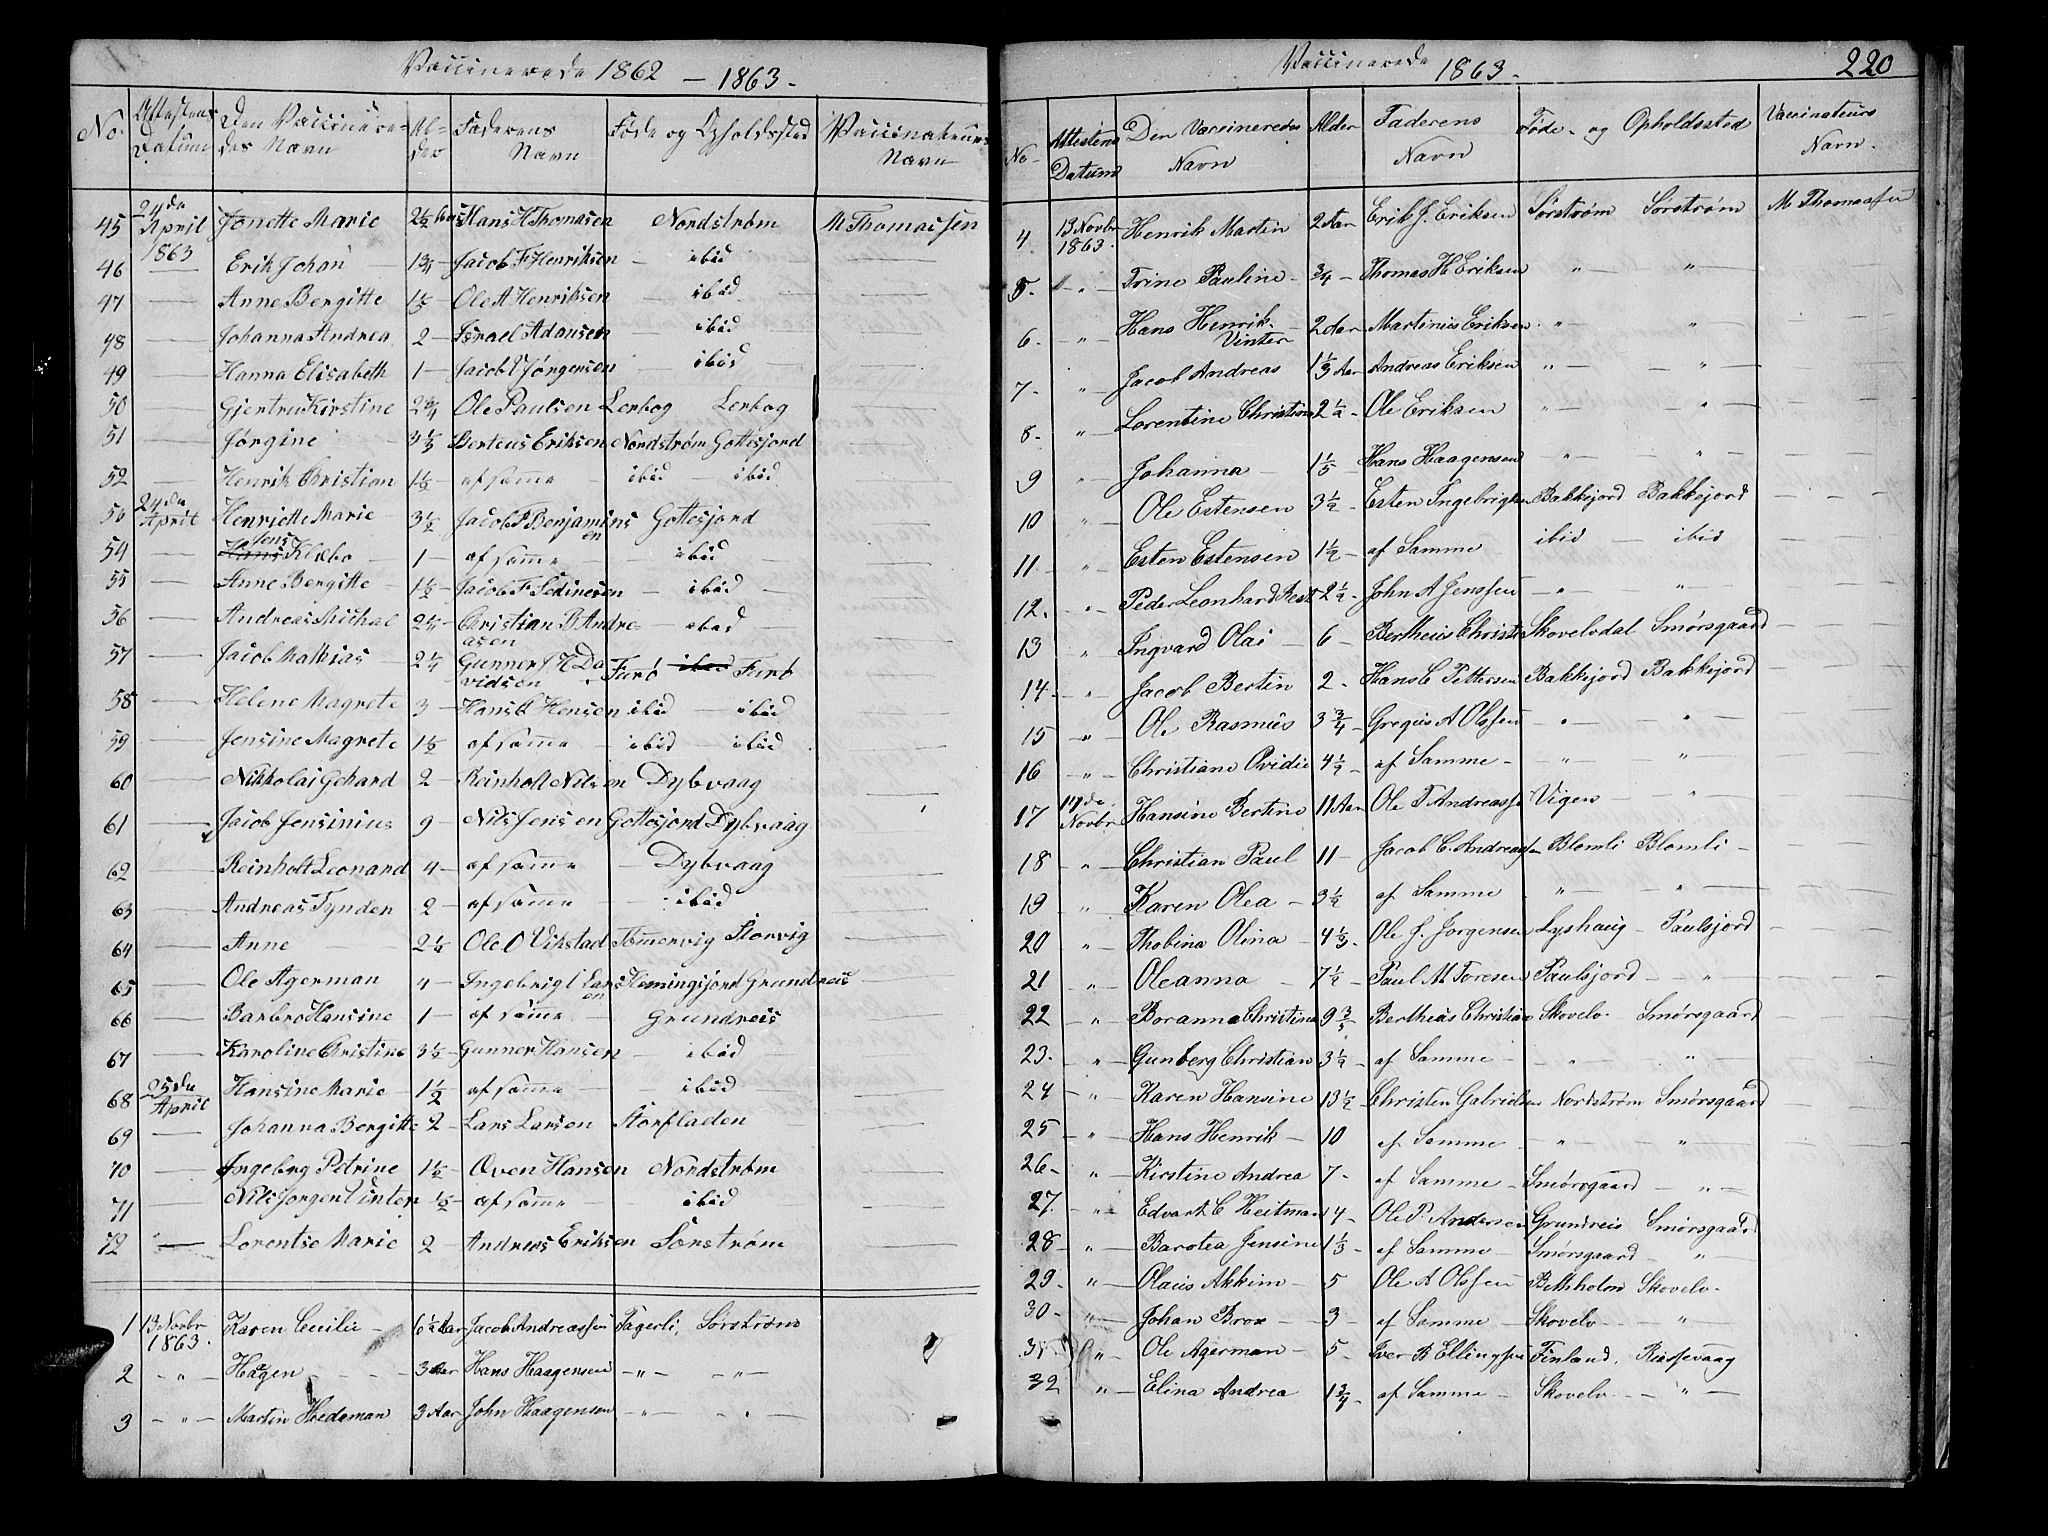 Vaccinerede 1862 – 1863.
No. Attestens Datum Den Vaccineredes Navn Alder Faderens Navn Føde og Opholdssted Vaccinateurs Navn
45 24de April 1863 Jonette Marie 2½ Hans H Thomasen Nordstrøm M Thomassen
46 — Erik Johan 1¾ Jacob F Henriksen — ibid
47 — Anne Bergitte Ole A Henriksen — ibid
48 — Johanna Andrea 2 — Israel Adansen ibid
49 — Hanna Elisabeth 1 — Jacob Jørgensen ibid
50 — Gjertru Kirstine 2¾ Ole Paulsen Lerbog Lerbog
51 — Jørgine 3⅓ Berteus Eriksen Nordstrøm Gottesjord
52 — Henrik Christian 1½ — af samme ibid — ibid
56 24de April Henriette Marie 3½ Jacob F Benjaminsen Gottesjord
54 — Jens Klæbo — 1 — af samme — ibid
55 — Anne Bergitte — 1½ Jacob F Sedinesen — ibid —
56 — Andreas Michal 2¼ Christian B Andreasen — ibid —
57 — Jacob Mathias — 2¼ Gunner J H Davidsen Furö Furö
58 — Helene Magrete 3 — Hans Hensen ibid — ibid
59 — Jensine Magrete 1½ — af samme — ibid — ibid
60 — Nikkolai Gehard 2 — Reinholt Nilsen Dybvaag
61 — Jacob Jensinius 9 — Nils Jensen Gottesjord Dybvaag
62 — Reinholt Leonard 4 — af samme — Dybvaag
63 — Andreas Tynder 2 — af samme — ibid
64 — Anne 2¼ Ole O Vikstad Tömmervig Storvig
65 — Ole Agerman 4 — Ingebrigt Larsen Hemingsjord Grundreis
66 — Barbro Hansine 1 — af samme Grundreis
67 — Karoline Christine 3½ — Gunner Hansen — ibid
68 25de April Hansine Marie — 1½ — af samme — ibid
69 — Johanna Bergitte 2 — Lars Larsen Storfladen
70 — Ingeberg Petrine 1½ — Oven Hansen Nordstrøm
71 — Nils Jorgen Vinter ½ — af samme — ibid
72 — Lorentse Marie 2 — Andreas Eriksen Sørstrøm
1 13 Novbr 1863. Karen Cecilie — 6½ Aar Jacob Andreassen Fagerli, Sørstrøm
2 - " - Hagen 3 Aar Hans Haagensen - " - - " -
3 - " - Martin Hedeman 3 Aar John Haagensen - " - - " -
Vaccinerede 1863. 220
No. Attestens Datum Den Vaccineredes Navn Alder Faderens Navn Føde- og Opholdssted Vaccinateurs Navn.
4 13 Novbr 1863. Henrik Martin 2 Aar Erik J. Eriksen Sørstrøm Sørstrøm M Thomassen
5. - " - Trine Pauline — ¾ — Thomas H Eriksen " — " —
6. - " - Hans Henrik Vinter 2 Aar Martinus Eriksen " — "
7. " Jacob Andreas 1⅓ Aar Andreas Eriksen " — — " —
8. - " - Lorentine Christina 2½ — Ole Eriksen " — " —
9 " Johanna — 1⅕ — Hans Haagensen — " — " —
10 " Ole Estensen 3½ — Esten Ingebrigtsen Bakkejord Bakkejord
11. " Esten Estensen 1½ — af Samme ibid — ibid
12. - " - Peder Leonhard 2½ — John A Jenssen — " — " —
13 " Ingvard Olai 6 — Bertheus Christi Skovelvdal Smørsgaard
14. - " - Jacob Bertin 2 — Hans C Pettersen Bakkejord Bakkejord
15 " Ole Rasmus 3¾ — Gregus A Olssen " — " —
16 - " - Christiane Ovidie 4½ — af Samme — - " — "
17 14de Novbr Hansine Bertine 11 Aar Ole T Andreassen Vigen — - " —
18 - " - Christian Paul 11 — Jacob C. Andreassen Blomli Blomli —
19 " Karen Olea — 3½ — af Samme " — " —
20 " Thobina Olina — 4⅓ — Ole J. Jorgensen Lyshaug — Paulsjord
21 " Oleanna — 7½ — Paul M Toresen Paulsjord — "
22 - " - Boranna Christina 9⅗ Bertheus Christian Skovelv Smørsgaard
23. - " - Gunberg Christian 3½ — af Samme — " "
24 - " - Karen Hansine 13½ — Christen Gabrielsen Nordstrøm Smørsgaard
25 - " - Hans Henrik — 10 af Samme — " — "
26 - " - Kirstine Andrea 7 — af Samme — Smørsgaard — " —
27. - " - Edvart C Heitman 4 — Ole P. Andersen Grundreis Smørsgaard
28 - " - Barotea Jensine 1⅓ — af Samme — Smørsgaard — "
29. " — Olaus Akkim — 5 Ole A Olssen Bethholm Skovelv.
30 — " — Johan Brox — 3 — af Samme — Skovelv. — "
31 " — Ole Agerman — 5 — Iver B Ellingsen Finland,
32 " — Elina Andrea 1¾ — af Samme — Skovelv — " —